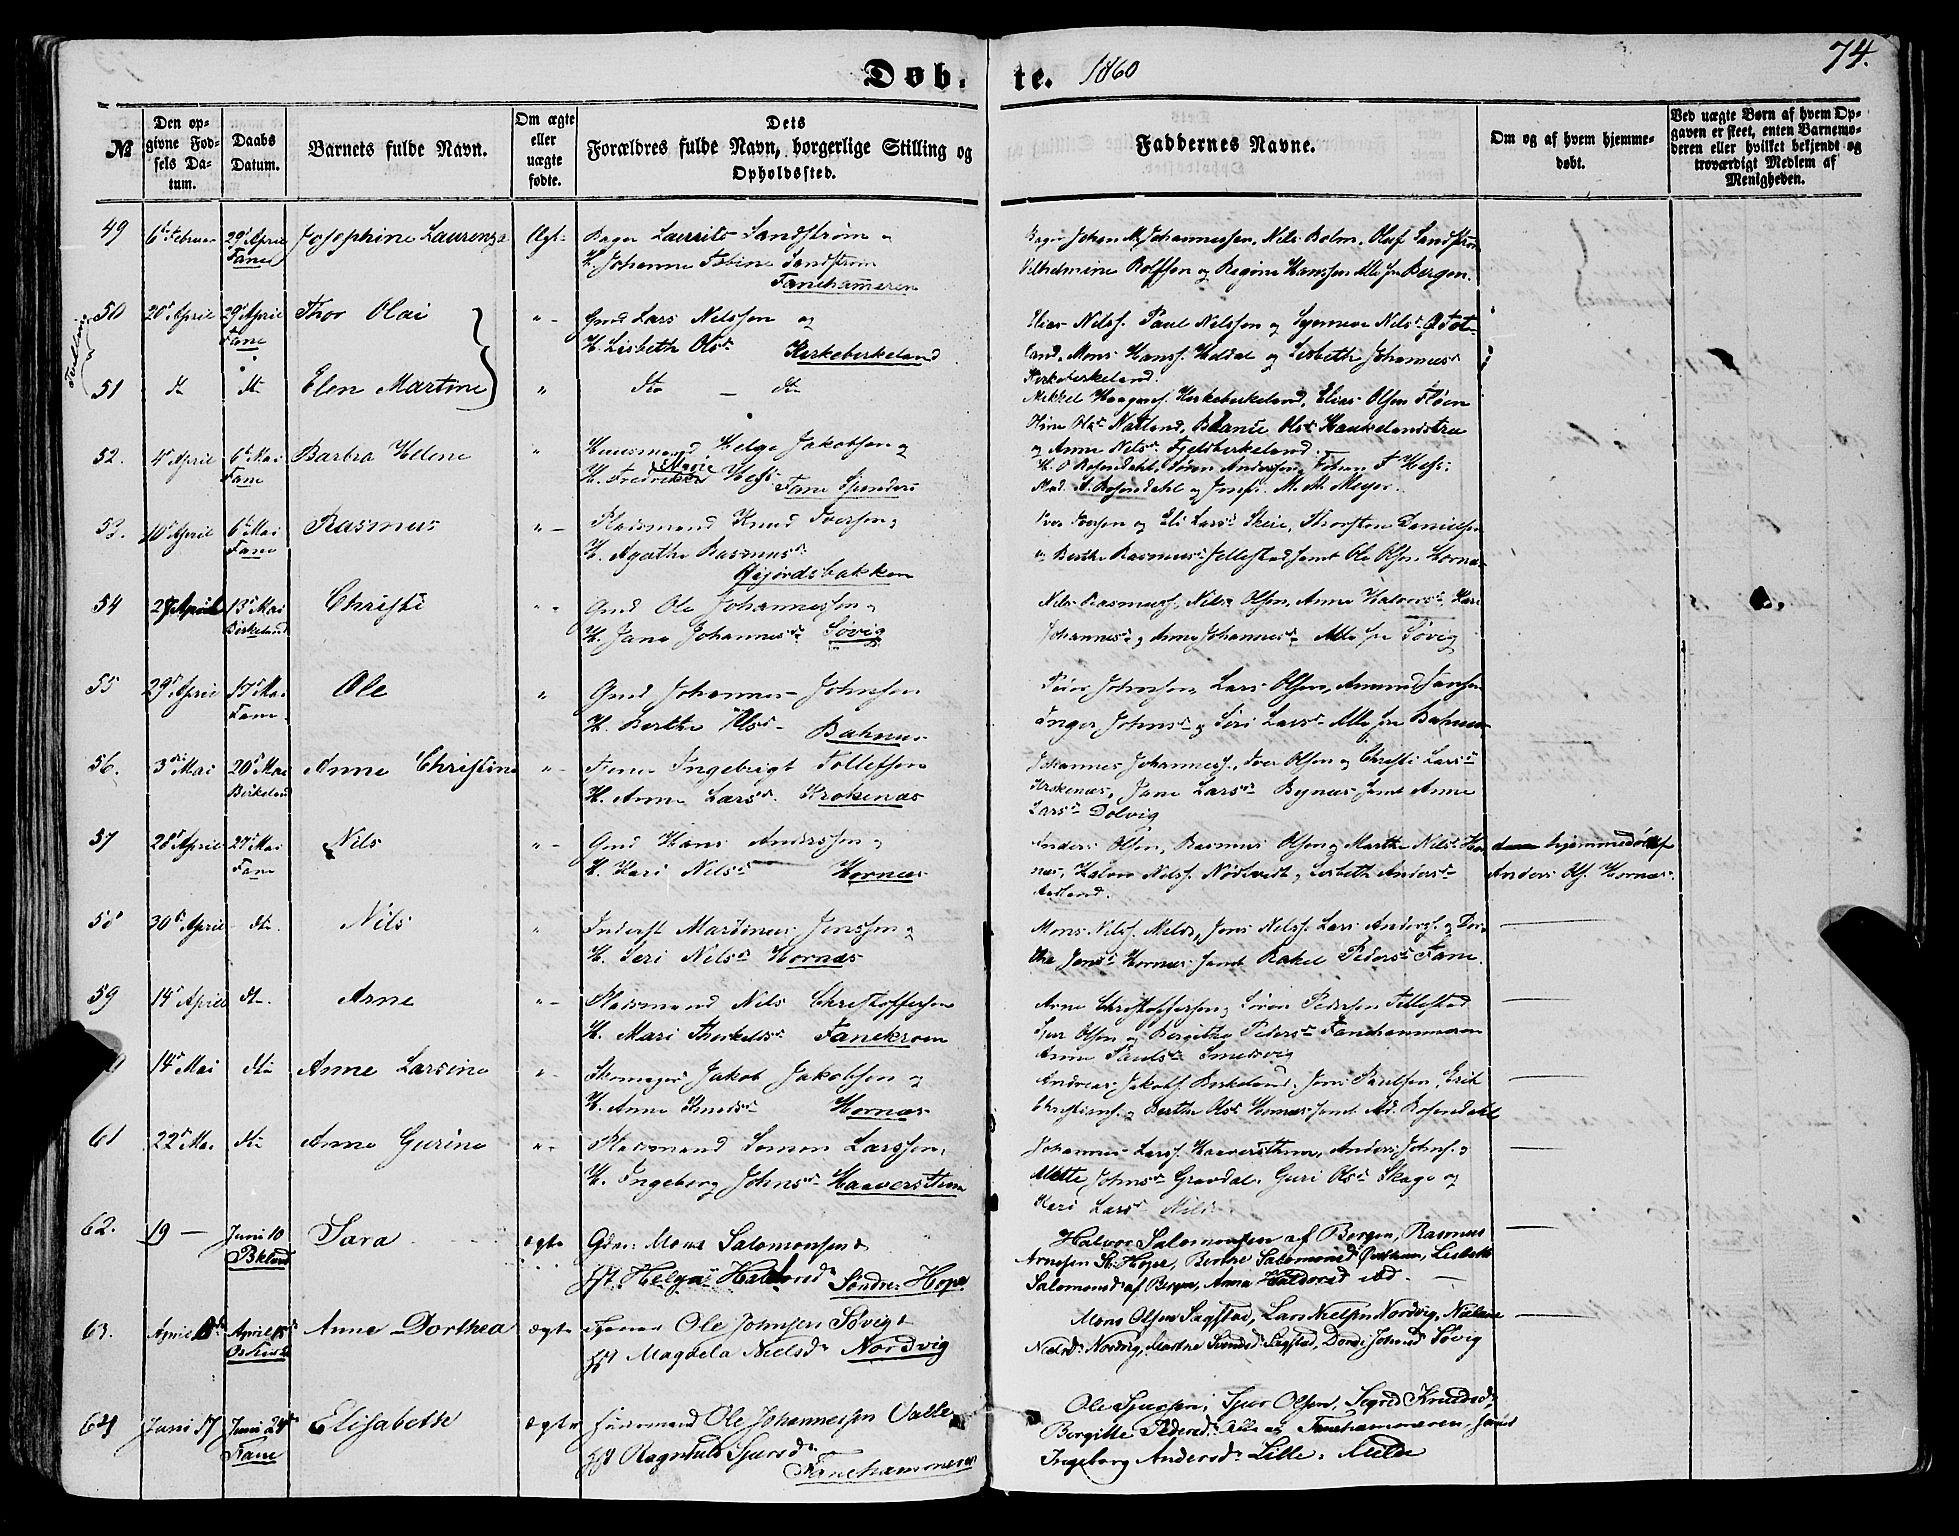 74.
Døb. te. 1860
№
Den opgivne Fødsels Datum.
Daabs Datum.
Barnets fulde Navn.
Om ægte eller uægte fødte.
Dets Forældres fulde Navn, borgerlige Stilling og Opholdssted.
Faddernes Navne.
Om og af hvem hjemmedøbt.
Ved uægte Børn af hvem Opgaven er skeet, enten Barnemoderen eller hvilket bekjendt og troværdigt Medlem af Menigheden.
49 6te Februar 29de April Fane Josephine Laurenza Ægte
Bager Laurits Sandstrøm
H. Johanne Sandstrøm
Fanehammeren
Bager Johan M. Johannessen, Nils Bolm, Olaf Sandstrøm
Vilhelmine Rolfsen og Regine Hanssen Alle fra Bergen.
Tvilling
50 20de April 29de April Fane Thor Olai
Gmd Lars Nilssen og
H. Lisbeth Olsd. Kirkebirkeland
Elias Nilss. Paul Nilssen og Synneve Nilsd.
land, Mons Hanss. Heldal og Lisbeth Johannesd.
Kirkebirkeland.
51 do do Elen Martine " do — do
Mikkel Haagens. Kirkebirkeland, Elias Olsen Fløen
Olsd. Natland, Olsd. Haukelandstræ
og Anne Nilsd. Fjeldbirkeland.
52. 4de April 6te Mai Fane Barbra Helene "
Huusmand Helge Jakobsen og
H. Fredrikke Marie Hess: Fane
H. O Rosendahl, Søren Anderssen, Johan F Hess:
Mad. A. Rosendahl og Jomf. M. M. Meyer.
53. 10de April 6te Mai Fane Rasmus
Pladsmand Knud Iversen,
H. Agathe Rasmusd.
Øvjordsbakken
Iver Iversen og Eli Larsd. Skeie, Thorsten Danielsen
Berthe Rasmusd. Jellestad samt Ole Olsen Hornæs
54 27 April 13de Mai Birkeland Christi
Gmd Ole Johannessen
H. Jana Johannesd. Søvig
Nils Rasmuss, Nils Olsen, Anna Halvorsd. Kari
Johannesd. og Anna Johannesd. Alle fra Søvig
55 29de April 17de Mai Fane. Ole "
Gmd Johannes Johnsen
H. Berthe Olsd. Bahnus
Peder Johnssen, Lars Olsen, Amund Hanssen
Inger Johnsd. og Siri Larsd. Alle fra Bahnus
56. 3die Mai 20de Mai Birkeland Anne Christine
Ingebrigt Tollefsen
H. Anne Larsd. Krokenæs
Johannes Johanness., Iver Olsen og Christi Larsd.
Krokenæs, Jane Larsd. Bynæs samt Anne
Larsd. Dolvig
57 28de April 27de Mai Fane Nils
Gmd Hans Anderssen
H. Kari Nilsd. Hornæs
Anders Olsen, Rasmus Olsen og Marthe Nilsd. Hor-
næs, Halvor Nilss. Nordtvedt, Lisbeth Andersd.
hjemmedøbt af
Anders Ols. Hornæs.
58 30de April do. Nils
Inderst Martinus Jenssen og
H. Siri Nilsd. Hornæs
Mons Nilss. Melde, Jens Nilss. Lars Anderss. og Dor-
the Jensd. Hornæs samt Rakel Pedersd. Fane.
59 14de April do. Arne
Pladsmand Nils Christoffersen
H. Mari Thorkelsd. Fanekroen
Arne Christoffersen, Søren Pedersen Tellestad
Sjur Olsen og Bergithe Pedersd. Fanehammeren
Anne Paulsd. Smedsvig
14de Mai do Anne Larsine
Skomager Jakob Jakobsen og
H. Anne Knudsd. Hornæs
Andreas Jakobs. Birkeland, Jens Paulsen, Erik
Christians. og Berthe Olsd. Hornæs samt Md. Rosendahl
61 22de Mai do Anne Gurine
Pladsmand Simon Larssen,
H. Ingeborg Johnsd. Haaversthun
Johannes Larss. Haaversthun, Anders Johns. og
Mette Johnsd. Gravdal, Guri Olsd. Skage og
Kari Larsd.
62. 19 — Juni 10 Bkland Sara ægte
Gdm. Mons Salomonsen &
Hst. Helga Haldorsd. Søndre Hope
Halvor Salomonsen af Bergen, Rasmus
Arnesen St. Hope, Berthe Salomonsd. Lisbeth
Salomonsd. af Bergen, Anna Haldorsd. ibd.
63. April April Anne Dorthea ægte
Ole Johnsen Søvig &
Hst Magdela Nielsd. Nordvig
Mons Olsen Sagstad, Lars Nielsen Nordvig, Nielsine
Nielsd. Nordvig, Marthe Svendsd. Sagstad, Dorthe Johnsd. Søvig
64 Juni 17 Juni 24de Fane Elisabeth ægte
Huusmand Ole Johannessen Valle
Hst Ragnhild Sjursd.
Fanehammeren
Ole Sjursen, Sjur Olsen, Sigrid Knudsd.
Borgitte Pedersd. Alle af Fanehammeren, samt
Ingeborg Andersd. Lille Melde